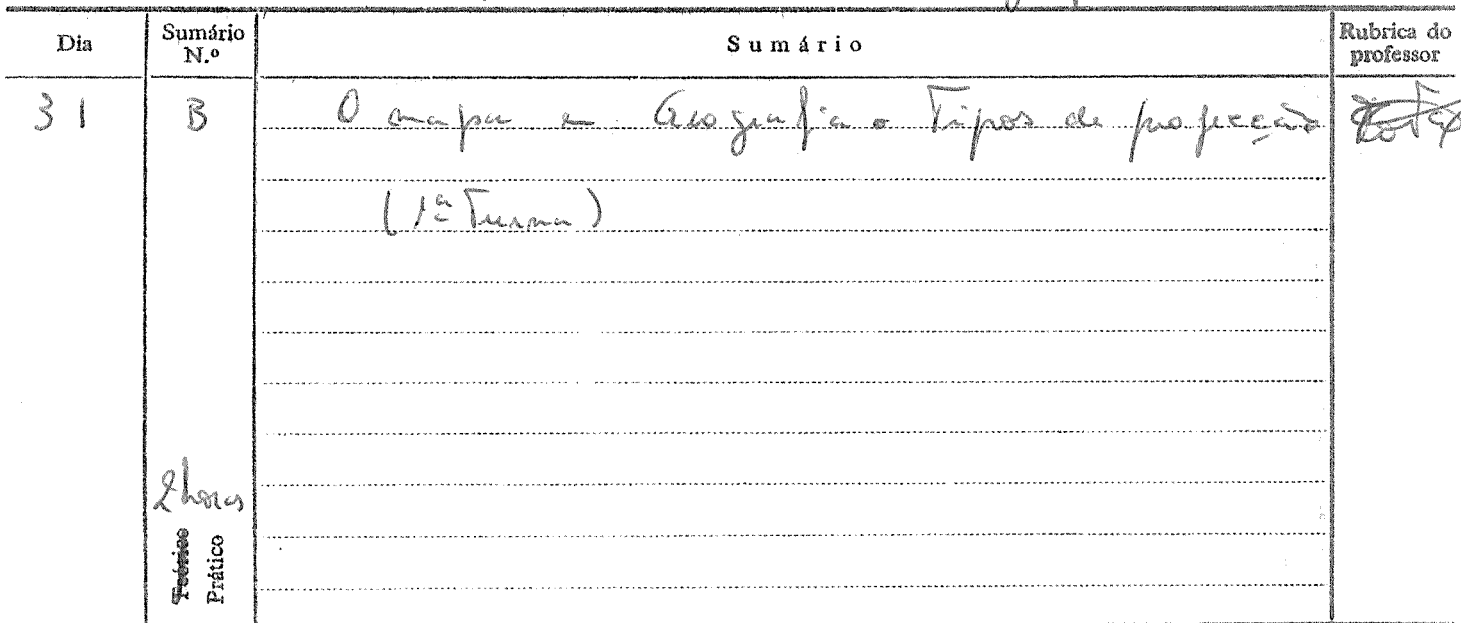 Dia
Sumário N.º
Sumário
Rubrica do professor
31
B
O mapa em Geografia. Tipos de projecção
(1ª Turma)
2 horas
Teórico
Prático